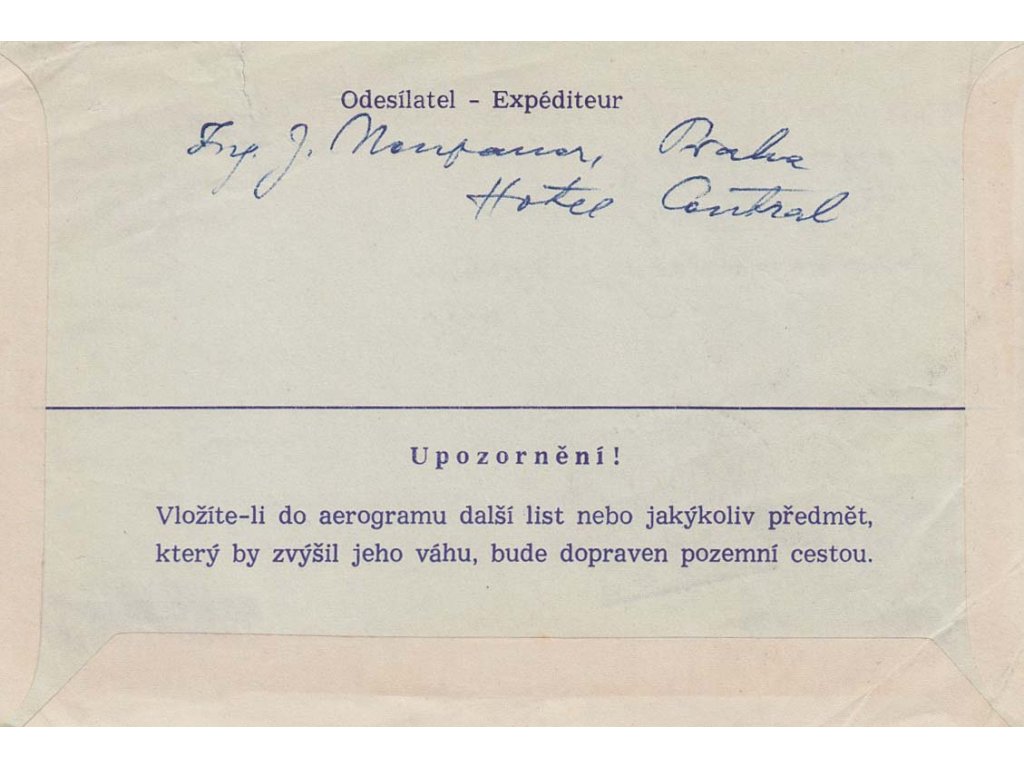 Odesílatel - Expéditeur
Ing. J. Neupauer, Praha
Hotel Central
Upozornění!
Vložíte-li do aerogramu další list nebo jakýkoliv předmět,
který by zvýšil jeho váhu, bude dopraven pozemní cestou.